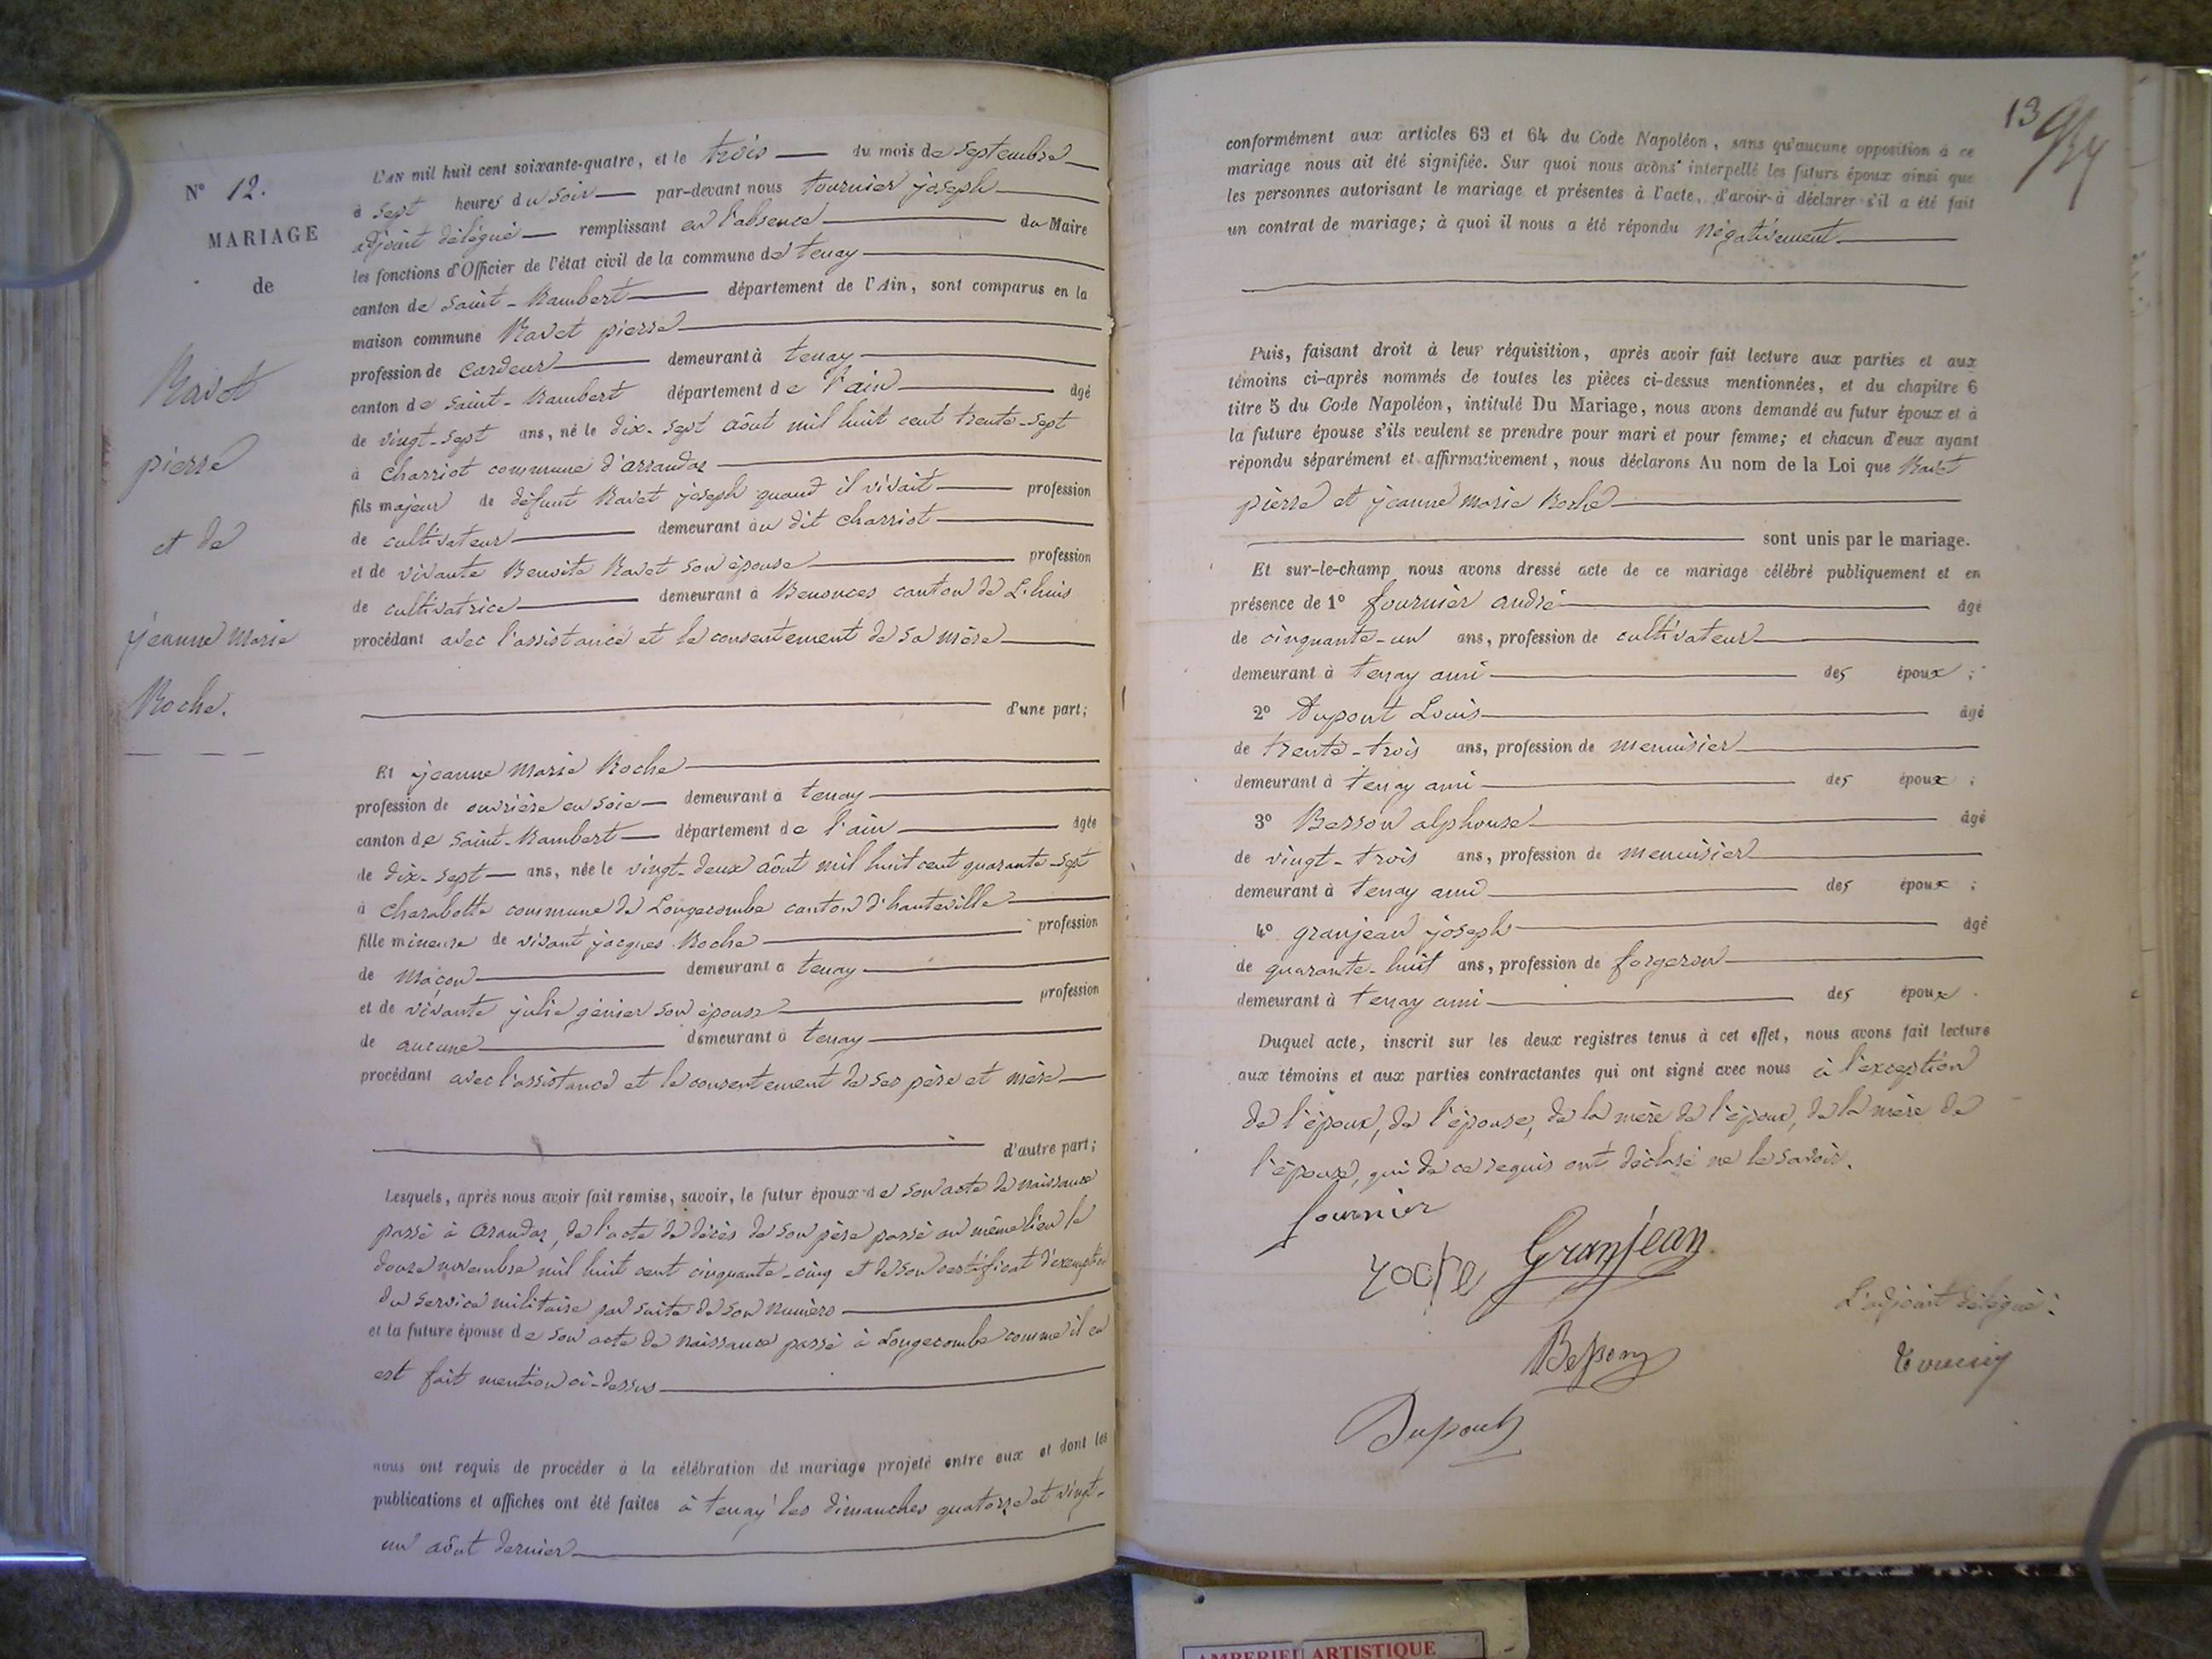 N° 12.
MARIAGE
de
Ravet
pierre
et de
jeanne marie
Roche.
L'AN mil huit cent soixante-quatre, et le trois du mois de septembre
à sept heures du soir par-devant nous tournier joseph
adjoint délégué remplissant en l'absence du Maire
les fonctions d'Officier de l'état civil de la commune de tenay
canton de saint-Rambert département de l'Ain, sont comparus en la
maison commune Ravet pierre
profession de cardeur demeurant à tenay
canton de saint-Rambert département de l'ain âgé
de vingt-sept ans, né le dix-sept août mil huit cent trente-sept
à Charriot commune d'arrandaz
fils majeur de défunt Ravet joseph quand il vivait profession
de cultivateur demeurant au dit charriot
et de vivante Benoite Ravet son épouse profession
de cultivatrice demeurant à Benonces canton de L'huis
procédant avec l'assistance et le consentement de sa mère
d'une part;
Et jeanne marie Roche
profession de ouvrière en soie demeurant à tenay
canton de saint-Rambert département de l'ain âgée
de dix-sept ans, née le vingt-deux août mil huit cent quarante-sept
à charabotte commune de Longecombe canton d'hauteville
fille mineure de vivant jacques Roche profession
de maçon demeurant à tenay
et de vivante julie génier son épouse profession
de aucune demeurant à tenay
procédant avec l'assistance et le consentement de ses père et mère
d'autre part;
Lesquels, après nous avoir fait remise, savoir, le futur époux de son acte de naissance
passé à arandaz, de l'acte de décès de son père passé au même lieu le
douze novembre mil huit cent cinquante-cinq et de son certificat d'exemption
du service militaire par suite de son numéro
et la future épouse de son acte de naissance passé à Longecombe comme il en
est fait mention ci-dessus
nous ont requis de procéder à la célébration du mariage projeté entre eux et dont les
publications et affiches ont été faites à tenay les dimanches quatorze et vingt-
un août dernier
13
conformément aux articles 63 et 64 du Code Napoléon, sans qu'aucune opposition à ce
mariage nous ait été signifiée. Sur quoi nous avons interpellé les futurs époux ainsi que
les personnes autorisant le mariage et présentes à l'acte, d'avoir à déclarer s'il a été fait
un contrat de mariage; à quoi il nous a été répondu négativement.
Puis, faisant droit à leur réquisition, après avoir fait lecture aux parties et aux
témoins ci-après nommés de toutes les pièces ci-dessus mentionnées, et du chapitre 6
titre 5 du Code Napoléon, intitulé Du Mariage, nous avons demandé au futur époux et à
la future épouse s'ils veulent se prendre pour mari et pour femme; et chacun d'eux ayant
répondu séparément et affirmativement, nous déclarons Au nom de la Loi que Ravet
pierre et jeanne marie Roche
sont unis par le mariage.
Et sur-le-champ nous avons dressé acte de ce mariage célébré publiquement et en
présence de 1° fournier andré âgé
de cinquante-un ans, profession de cultivateur
demeurant à tenay ami des époux;
2° Dupont Louis âgé
de trente-trois ans, profession de menuisier
demeurant à tenay ami des époux;
3° Besson alphonse âgé
de vingt-trois ans, profession de menuisier
demeurant à tenay ami des époux;
4° granjean joseph âgé
de quarante-huit ans, profession de forgeron
demeurant à tenay ami des époux.
Duquel acte, inscrit sur les deux registres tenus à cet effet, nous avons fait lecture
aux témoins et aux parties contractantes qui ont signé avec nous à l'exception
de l'époux, de l'épouse, de la mère de l'époux, de la mère de
l'épouse, qui de ce requis ont déclaré ne le savoir.
fournier
roche Granjean
L'adjoint délégué:
Besson
Dupont
AMBERIEU ARTISTIQUE